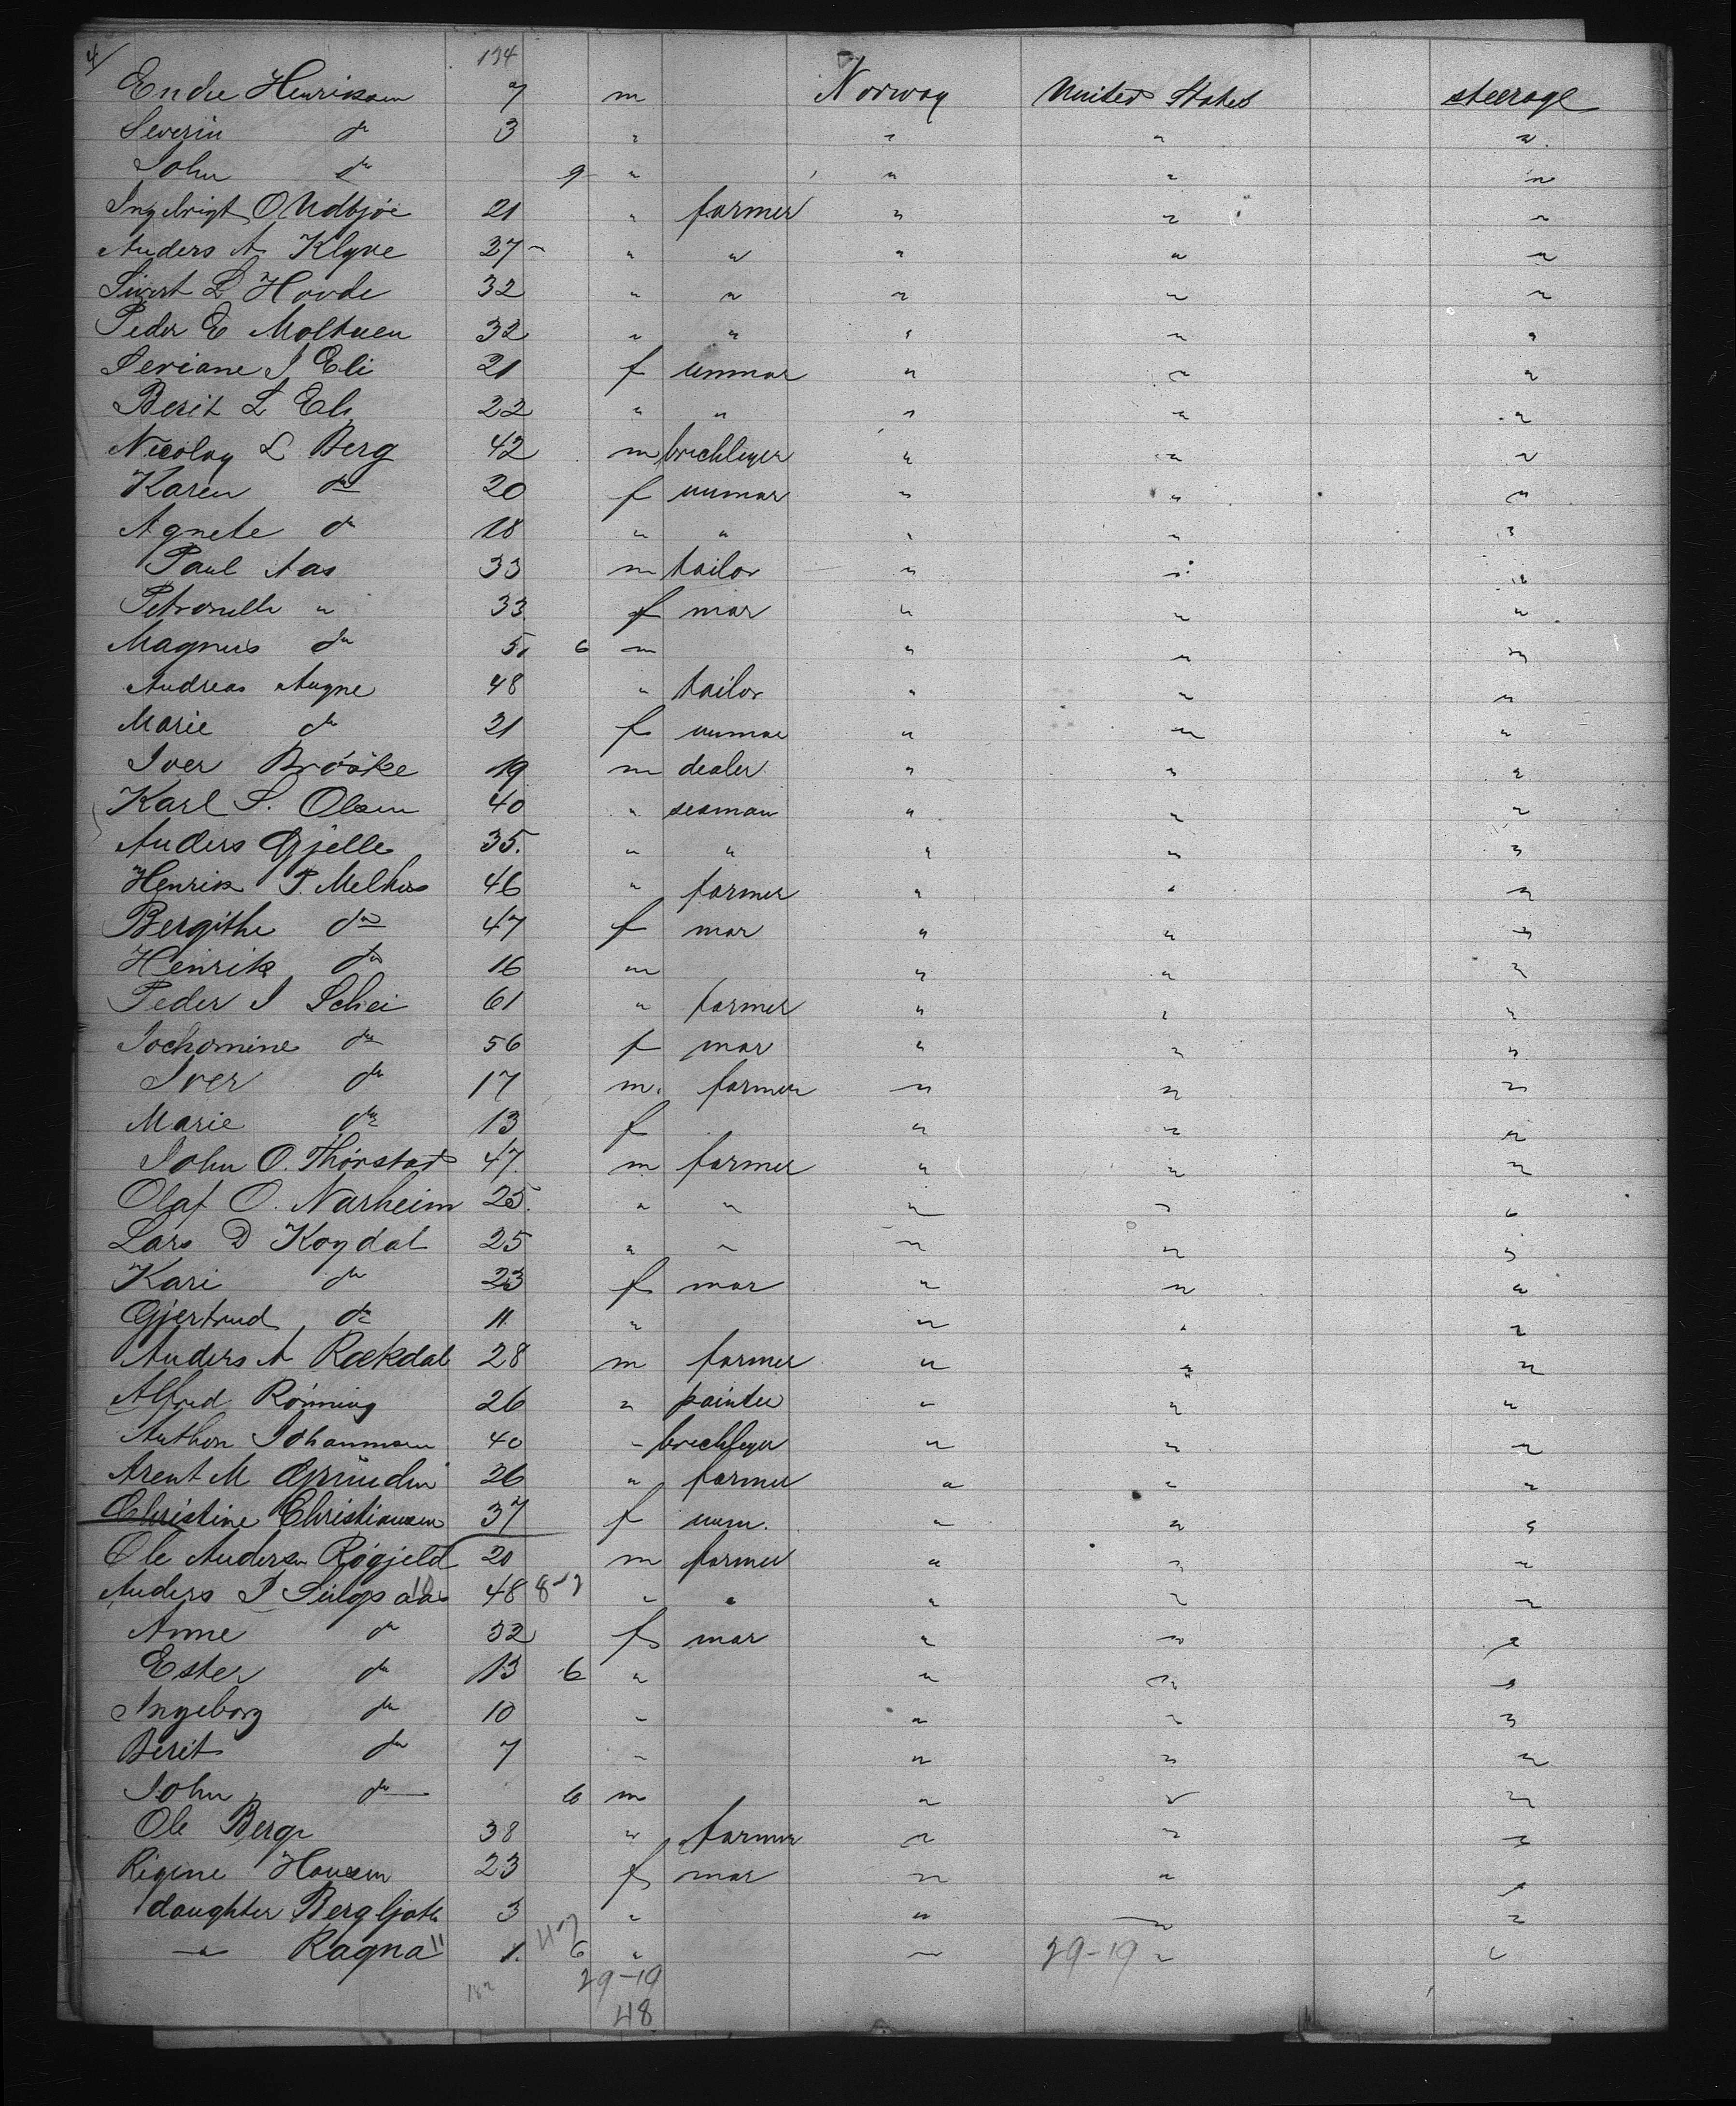 4/ 134
Endre Henriksen 7 m Norway United States steerage
Severin do 3 " " " "
John do 9 " " " "
Ingebrigt O Udbjöe 21 " farmer " " "
Anders A Klyve 27 " " " " "
Sivert L Hovde 32 " " " " "
Peder E Moltuen 32 " " " " "
Seriane J Eli 21 f unmar " " "
Berit L Eli 22 " " " " "
Nicolay L Berg 42 m brickleyer " " "
Karen do 20 f unmar " " "
Agnete do 18 " " " " "
Paul Aas 33 m tailor " " "
Petronelle " 33 f mar " " "
Magnus do 5 6 m " " "
Andreas Augne 48 " tailor " " "
Marie do 21 f unmar " " "
Iver Brööke 19 m dealer " " "
Karl S. Olsen 40 " seaman " " "
Anders Gjelle 35. " " " " "
Henrik P. Melhus 46 " farmer " " "
Bergithe do 47 f mar " " "
Henrik do 16 m " " "
Peder J Schei 61 " farmer " " "
Jochomine do 56 f mar " " "
Iver do 17 m. farmer " " "
Marie do 13 f " " "
John O. Thörstad 47 m farmer " " "
Olaf O. Narheim 25. " " " " "
Lars D Kogdal 25 " " " " "
Kari do 23 f mar " " "
Gjertrud do 11 " " " "
Anders A Rækdal 28 m farmer " " "
Alfred Rönning 26 " painter " " "
Anthon Johannsen 40 " brickleyer " " "
Arent M 26 " farmer " " "
Christine Christiansen 37 f unm. " " "
Ole Andersen Rögjeld 20 m farmer " " "
Anders P 48 " " " " "
Anne do 32 f mar " " "
Ester do 13 6 " " " "
Ingeborg do 10 " " " "
Berit do 7 " " " "
John do 6 m " " "
Ole Berge 38 " farmer " " "
Rigine Hansen 23 f mar " " "
daughter Bergljoth 3 " " " "
" Ragna 11 1. 6 " " 29-19 " "
182 29-19
48